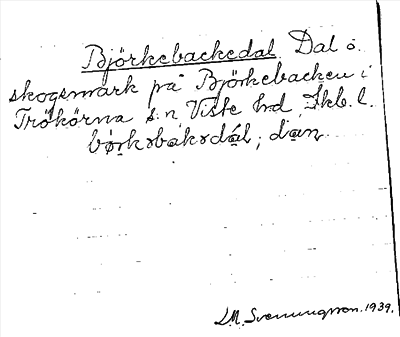 Björkebackedal. Dal ö.
skogsmark på Björkebacken i
Trökörna s:n Viste hd, Skb. l.
börkɔbakɔdál; dan
L.M. Svenungsson. 1939.